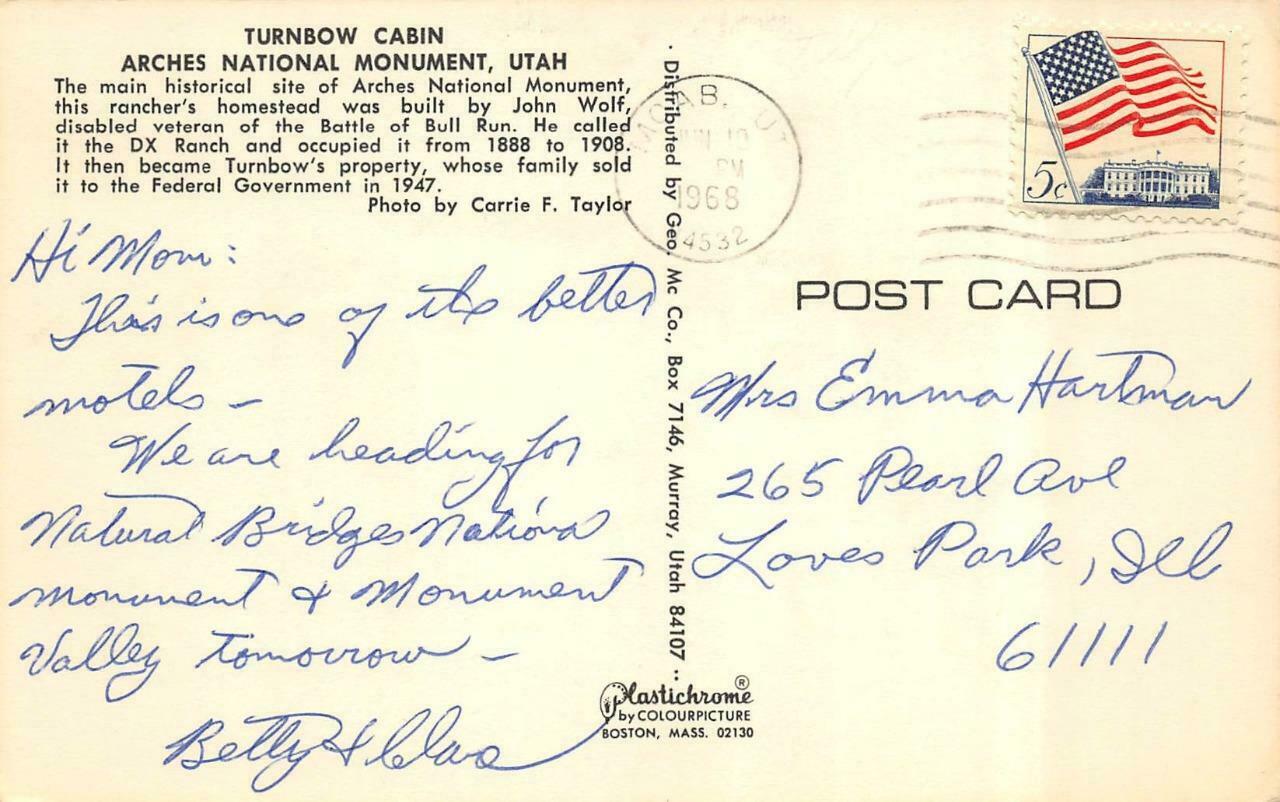 TURNBOW CABIN
ARCHES NATIONAL MONUMENT, UTAH
The main historical site of Arches National Monument,
this rancher's homestead was built by John Wolf,
disabled veteran of the Battle of Bull Run. He called
it the DX Ranch and occupied it from 1888 to 1908.
It then became Turnbow's property, whose family sold
it to the Federal Government in 1947.
Photo by Carrie F. Taylor
Hi Mom:
This is one of the better
motels –
We are heading for
Natural Bridges National
monument & Monument
Valley tomorrow –
Betty &
· Distributed by Geo. Mc Co., Box 7146, Murray, Utah 84107 ··
Plastichrome®
by COLOURPICTURE
BOSTON, MASS. 02130
MOAB, UT
10
PM
1968
4532
5c
POST CARD
Mrs Emma Hartman
265 Pearl Ave
Loves Park, Ill
61111